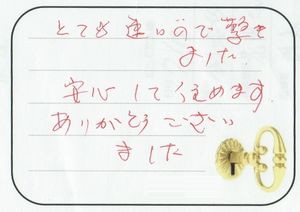 とても速いので驚き
ました
安心して住めます.
ありがとうござい
ました